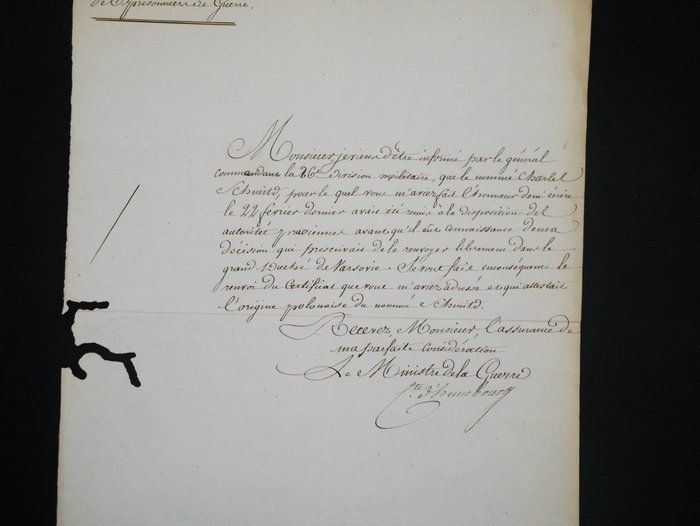 de Prisonniers de Guerre.
Monsieur, je viens d'être informé par le général
commandant la 26e division militaire, que le nommé Charles
Schmitd, pour le quel vous m'aviez fait l'honneur de m'écrire
le 22 février dernier avait été remis à la disposition des
autorités prussiennes avant qu'il eût connaissance de ma
décision qui prescrivait de le renvoyer librement dans le
grand Duché de Varsovie. Je vous fais en conséquence le
renvoi du Certificat que vous m'aviez adressé et qui attestait
l'origine polonaise du nommé Schmitd.
Recevez Monsieur, l'assurance de
ma parfaite considération
Le Ministre de la Guerre
Cte d'Hunebourg